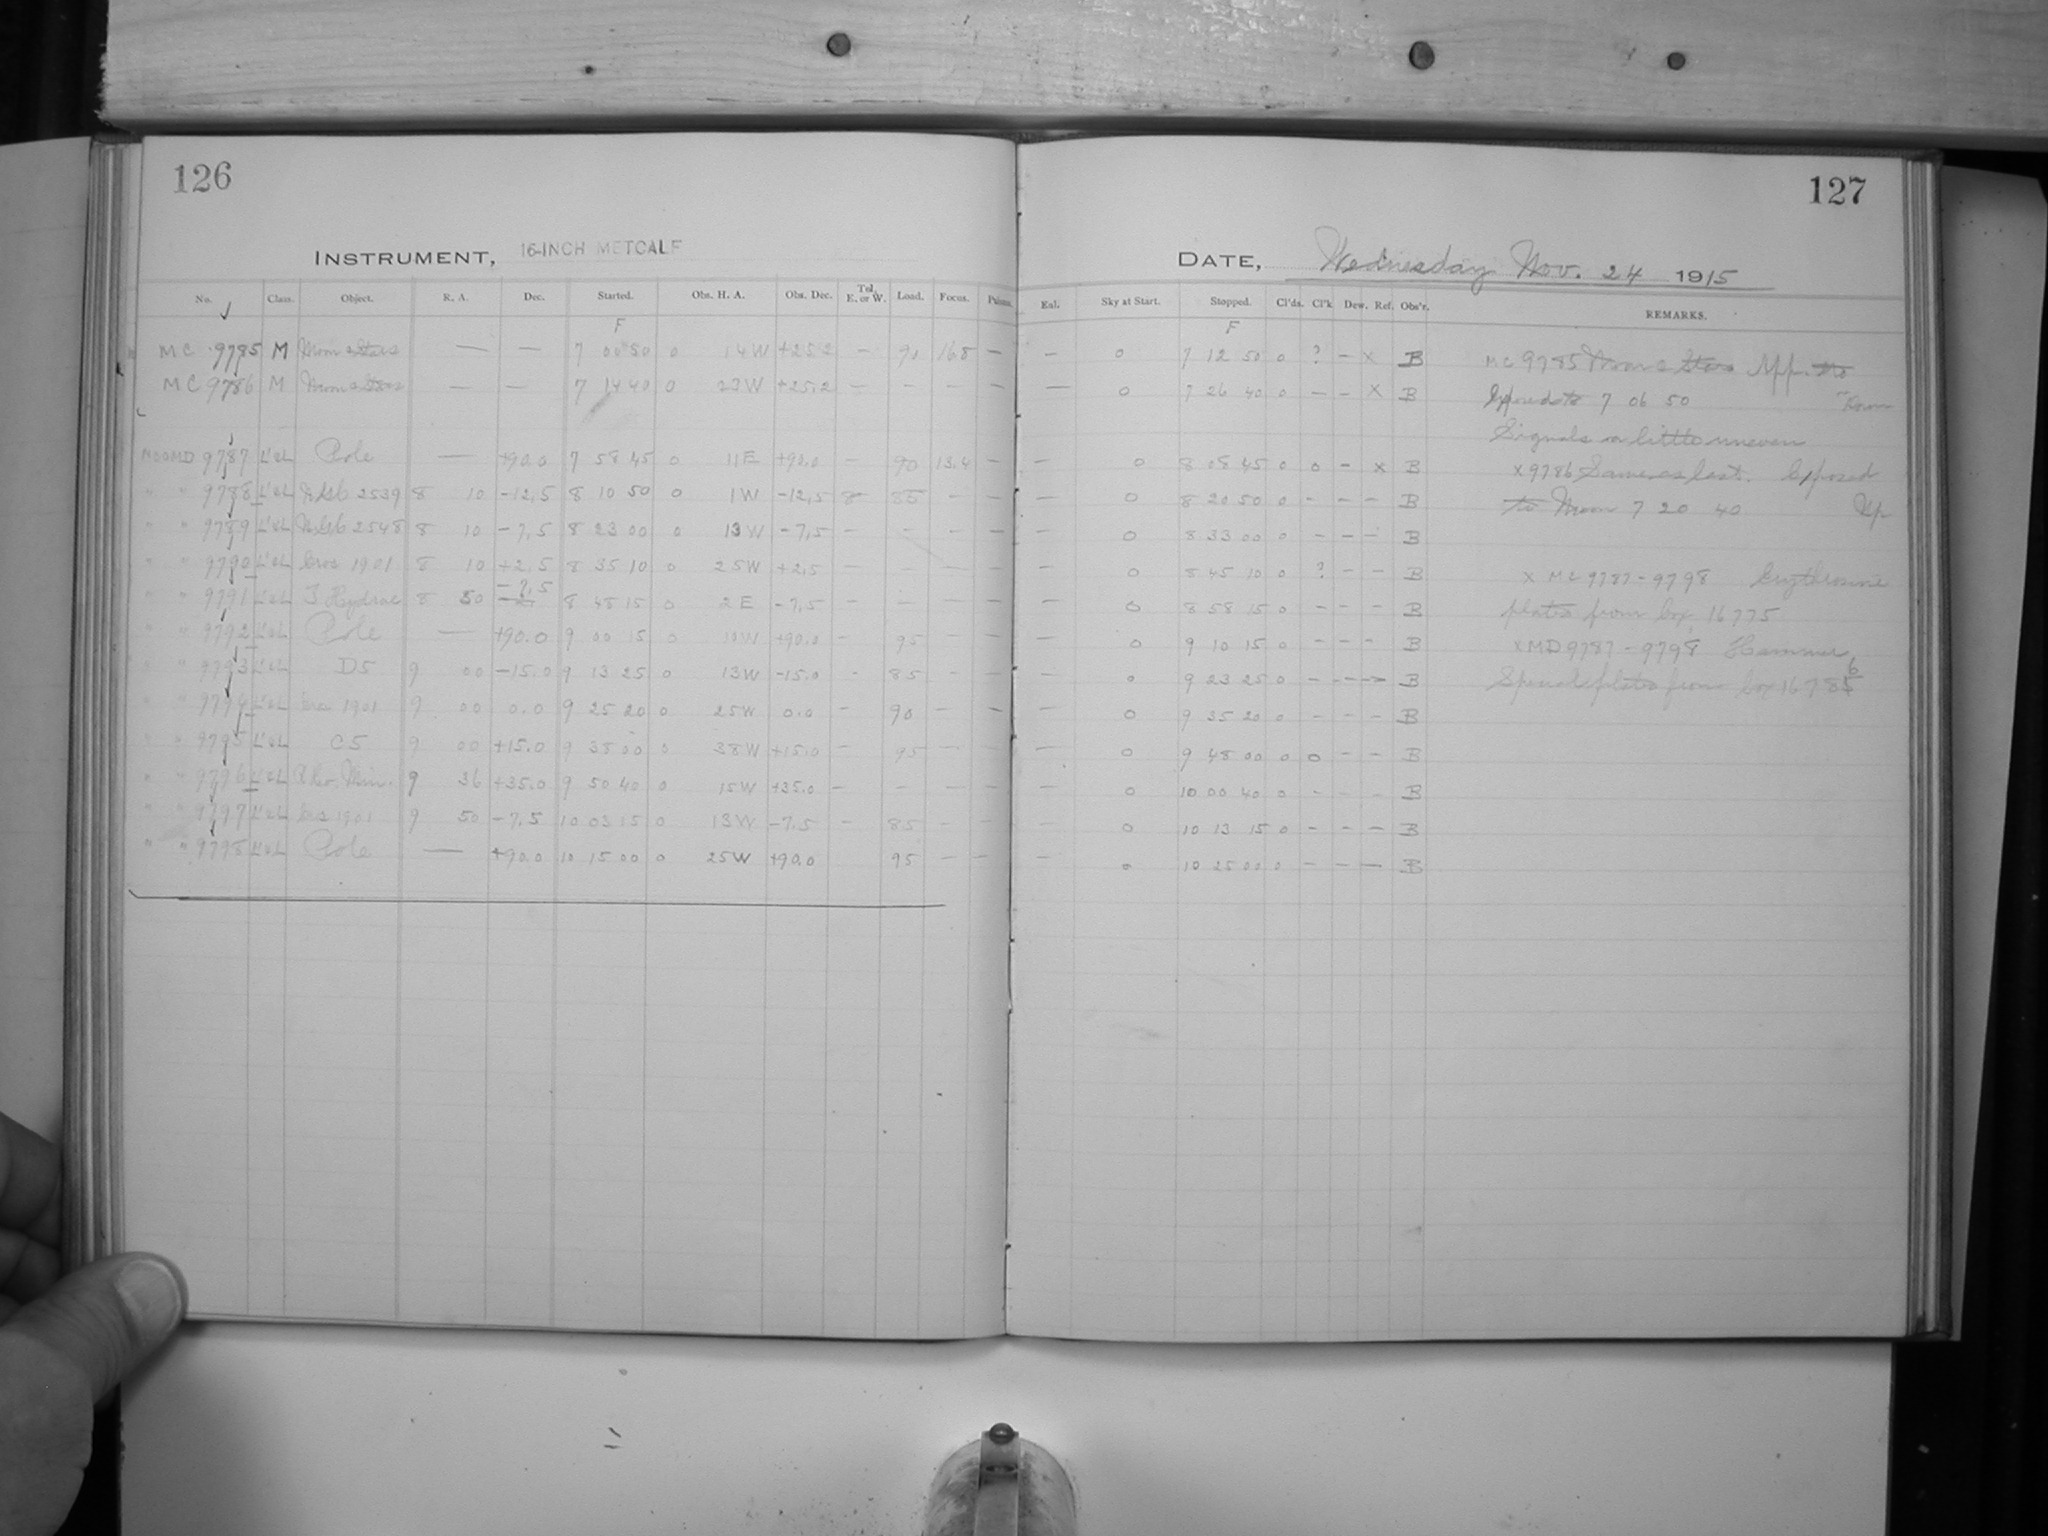 126
127
INSTRUMENT, 16-INCH METCALF
DATE, Wednesday Nov. 24 1915
No. Class. Object. R. A. Dec. Started. Obs. H. A. Obs. Dec. Tel. E. or W. Load. Focus.
Eal. Sky at Start. Stopped. Cl'ds. Cl'k Dew. Ref. Obs'r. REMARKS.
F F
MC 9785 M Moon & Stars — — 7 00 50 0 14W +25.2 — 90 16.8 — — 0 7 12 50 0 ? — x B MC 9785 Moon & Stars App.
MC 9786 M Moon & Stars — — 7 14 40 0 23W +25.2 — — — — — 0 7 26 40 0 — — x B Exposed to 7 06 50 Down
Signals a little uneven
9787 Pole — +90.0 7 58 45 0 11E +90.0 — 90 13.4 — — 0 8 08 45 0 0 — x B x 9786 Same as last. Exposed
" " 9788 2539 8 10 -12.5 8 10 50 0 1W -12.5 85 — — — 0 8 20 50 0 — — — B to Moon 7 20 40 Up
" " 9789 2548 8 10 -7.5 8 23 00 0 13W -7.5 — — — — — 0 8 33 00 0 — — — B
" " 9790 Eros 1901 8 10 +2.5 8 35 10 0 25W +2.5 — — — — — 0 8 45 10 0 ? — — B x MC 9787-9798 Erythrosine
" " 9791 T Hydrae 8 50 -7.5 8 48 15 0 2E -7.5 — — — — — 0 8 58 15 0 — — — B plates from box 16775
" " 9792 Pole — +90.0 9 00 15 0 10W +90.0 — 95 — — — 0 9 10 15 0 — — — B x MD 9787-9798 Hammer
" " 9793 D5 9 00 -15.0 9 13 25 0 13W -15.0 — 85 — — — 0 9 23 25 0 — — — B Special plates from box 16786
" " 9794 Eros 1901 9 00 0.0 9 25 20 0 25W 0.0 — 90 — — — 0 9 35 20 0 — — — B
" " 9795 C5 9 00 +15.0 9 38 00 0 38W +15.0 — 95 — — — 0 9 48 00 0 0 — — B
" " 9796 R Leo. Min. 9 36 +35.0 9 50 40 0 15W +35.0 — — — — — 0 10 00 40 0 — — — B
" " 9797 Eros 1901 9 50 -7.5 10 03 15 0 13W -7.5 — 85 — — — 0 10 13 15 0 — — — B
" " 9798 Pole — +90.0 10 15 00 0 25W +90.0 95 — — — 0 10 25 00 0 — — — B